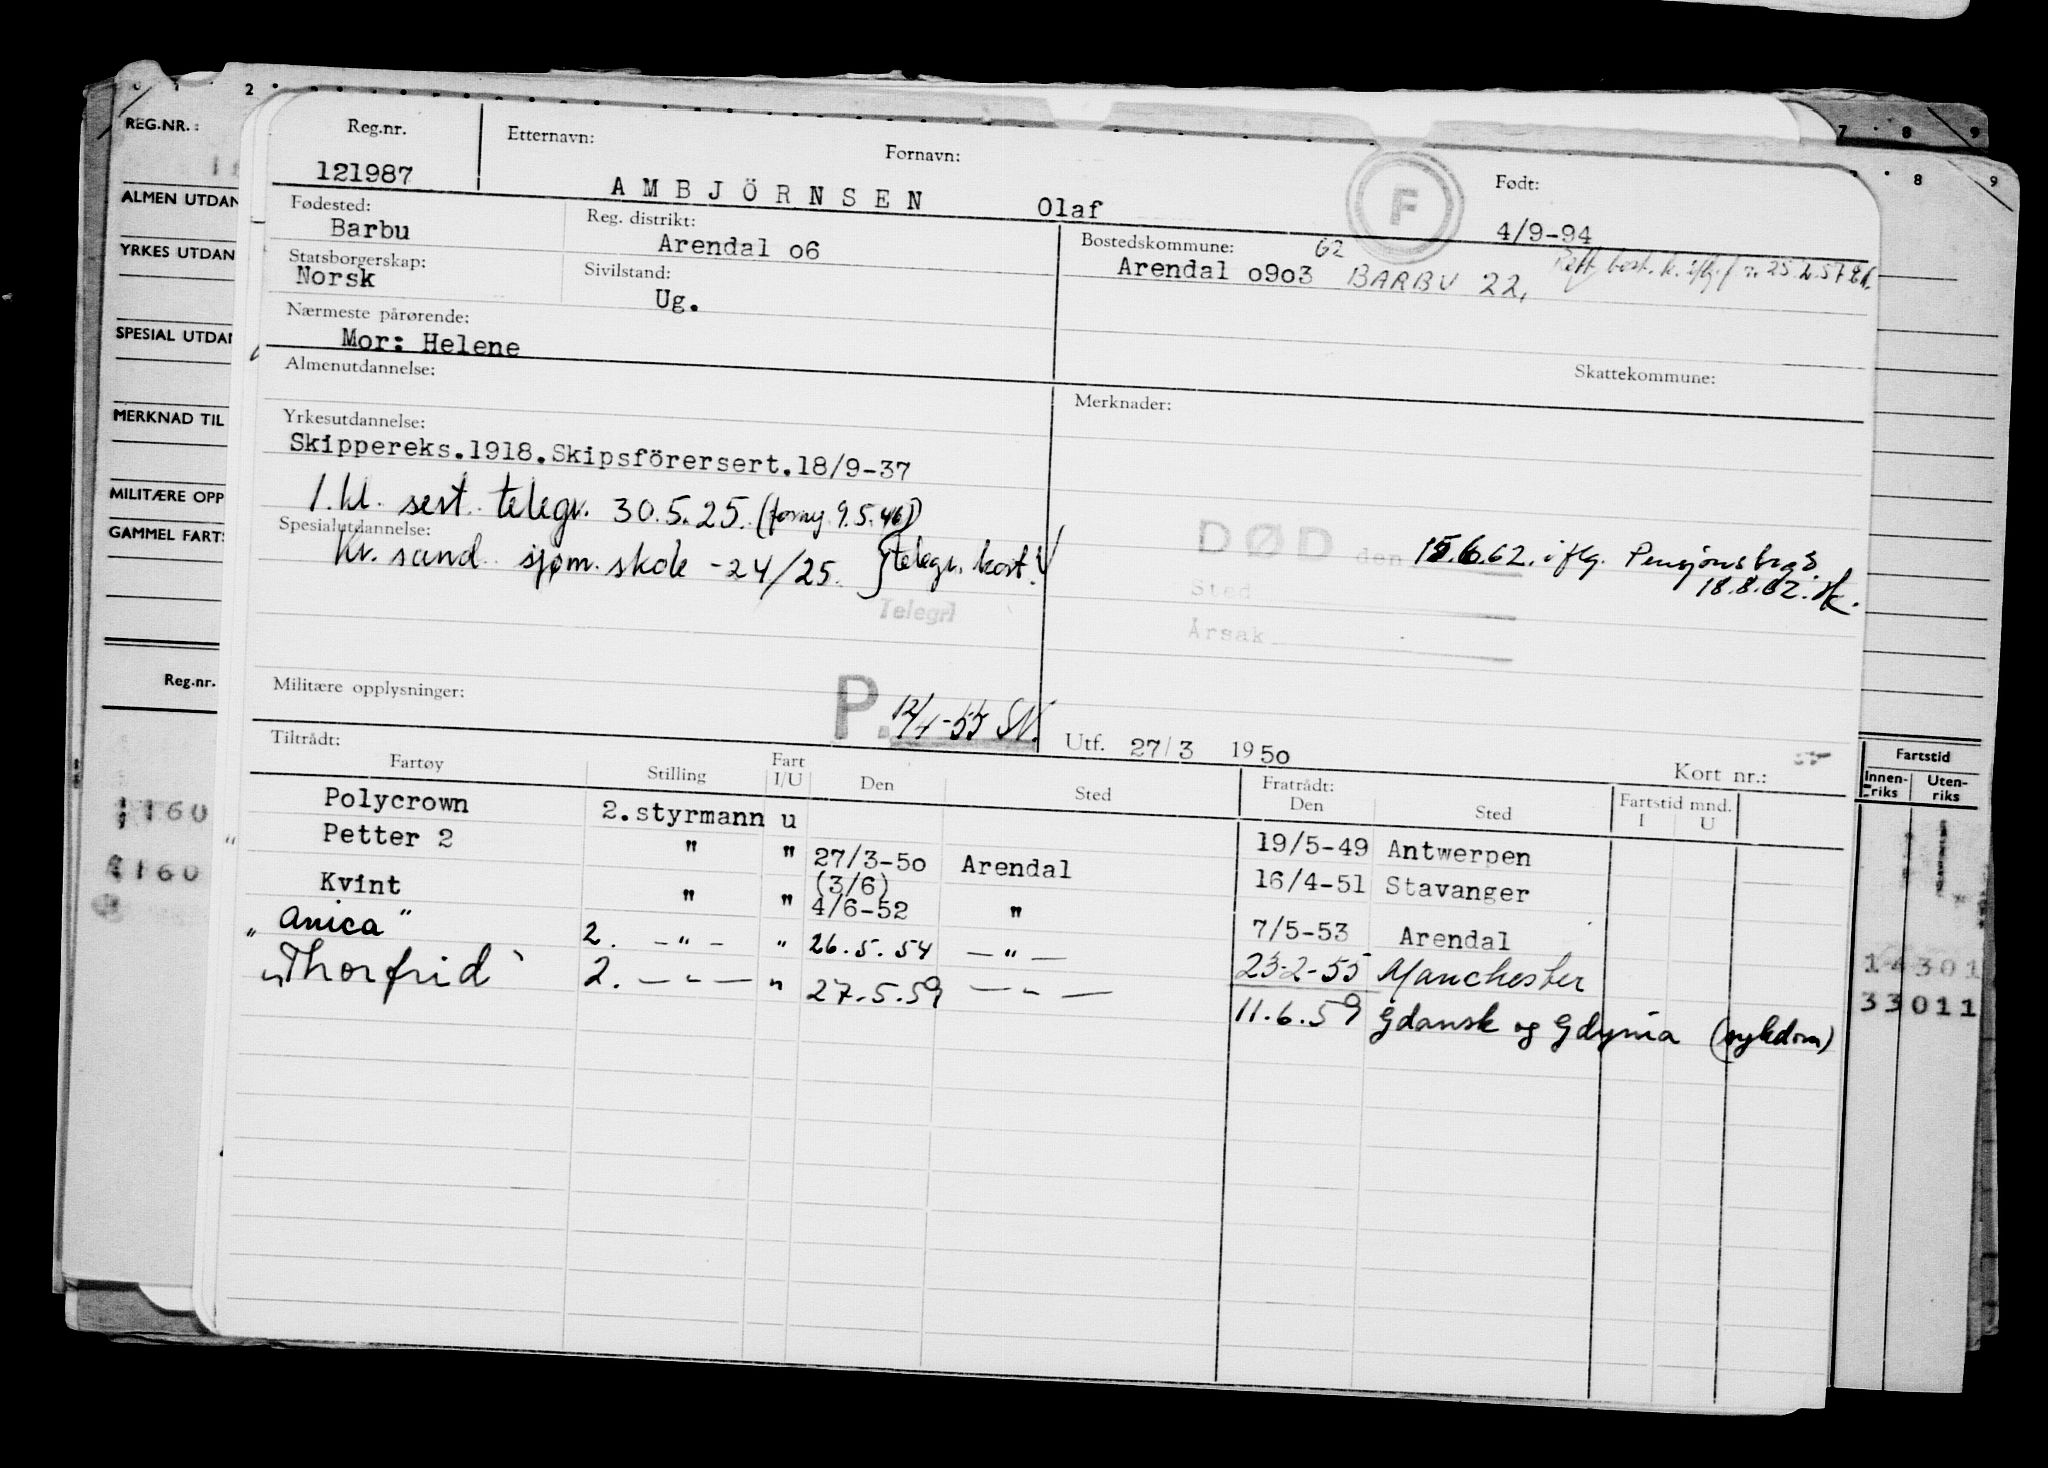 2 7 8 9
8 9
REG.NR.:
ALMEN UTDAN
YRKES UTDAN
SPESIAL UTDAN
MERKNAD TIL
MILITÆRE OPP
GAMMEL FARTS
Reg.nr.
1160
1160
Reg.nr. Etternavn: Fornavn: Født:
121987 AMBJÖRNSEN Olaf F 4/9-94
Fødested: Reg. distrikt: Bostedskommune: 62
Barbu Arendal o6 Arendal o9o3 BARBU 22,
Statsborgerskap: Sivilstand:
Norsk Ug.
Nærmeste pårørende:
Mor: Helene
Almenutdannelse: Skattekommune:
Yrkesutdannelse: Merknader:
Skippereks.1918.Skipsförersert.18/9-37
1. kl. sert. telegr. 30.5.25. (forny. 9.5.46)
Spesialutdannelse:
Kr. sand. sjøm. skole -24/25. } telegr. kort. V
Telegr
DØD den 15.6.62. iflg. Pensjonsbrgd
18.8.62.
Sted
Årsak
Militære opplysninger: P. 12/1-55 SN. Utf. 27/3 1950 Kort nr.:
Tiltrådt: Fratrådt: Fartstid mnd.
Fartøy Stilling Fart I/U Den Sted Den Sted I U
Polycrown 2.styrmann u 19/5-49 Antwerpen
Petter 2 " " 27/3-50 Arendal 16/4-51 Stavanger
Kvint " " (3/6) 4/6-52 " 7/5-53 Arendal
"Anica" 2. -"- " 26.5.54 -"- 23-2-55 Manchester
"Thorfrid" 2. -"- " 27.5.59 -"- 11.6.59 Gdansk og Gdynia (sykdom)
Fartstid
Innen-riks Uten-riks
14301
33011